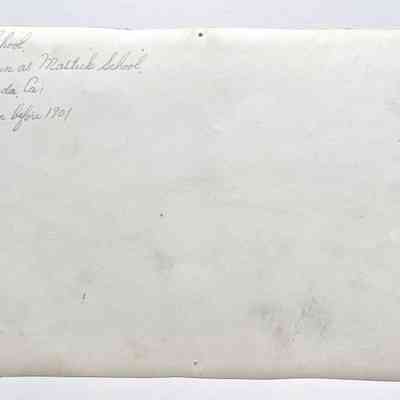 hool,
n as Mastick School,
da, Ca,
n before 1901